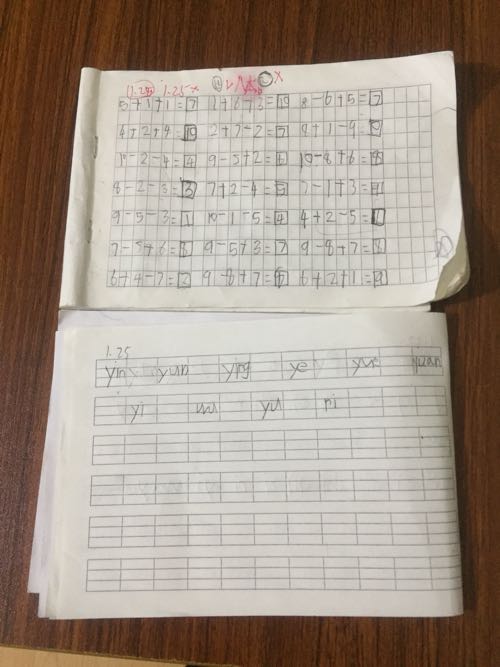 1.25 1.25
5+1+1=7 1+6+3=10 8-6+5=7
4+2+4=10 2+7-2=7 8+1-9=0
10-2-4=4 9-5+2=6 10-8+6=8
8-2-3=3 7+2-4=5
9-5-3=1 10-1-5=4 4+2-5=1
9-5+3=7 9-8+7=8
6+4-7=2 9-8+7= 6+2+1=9
1.25
yin yun ying ye yue yuan
yi wu yu